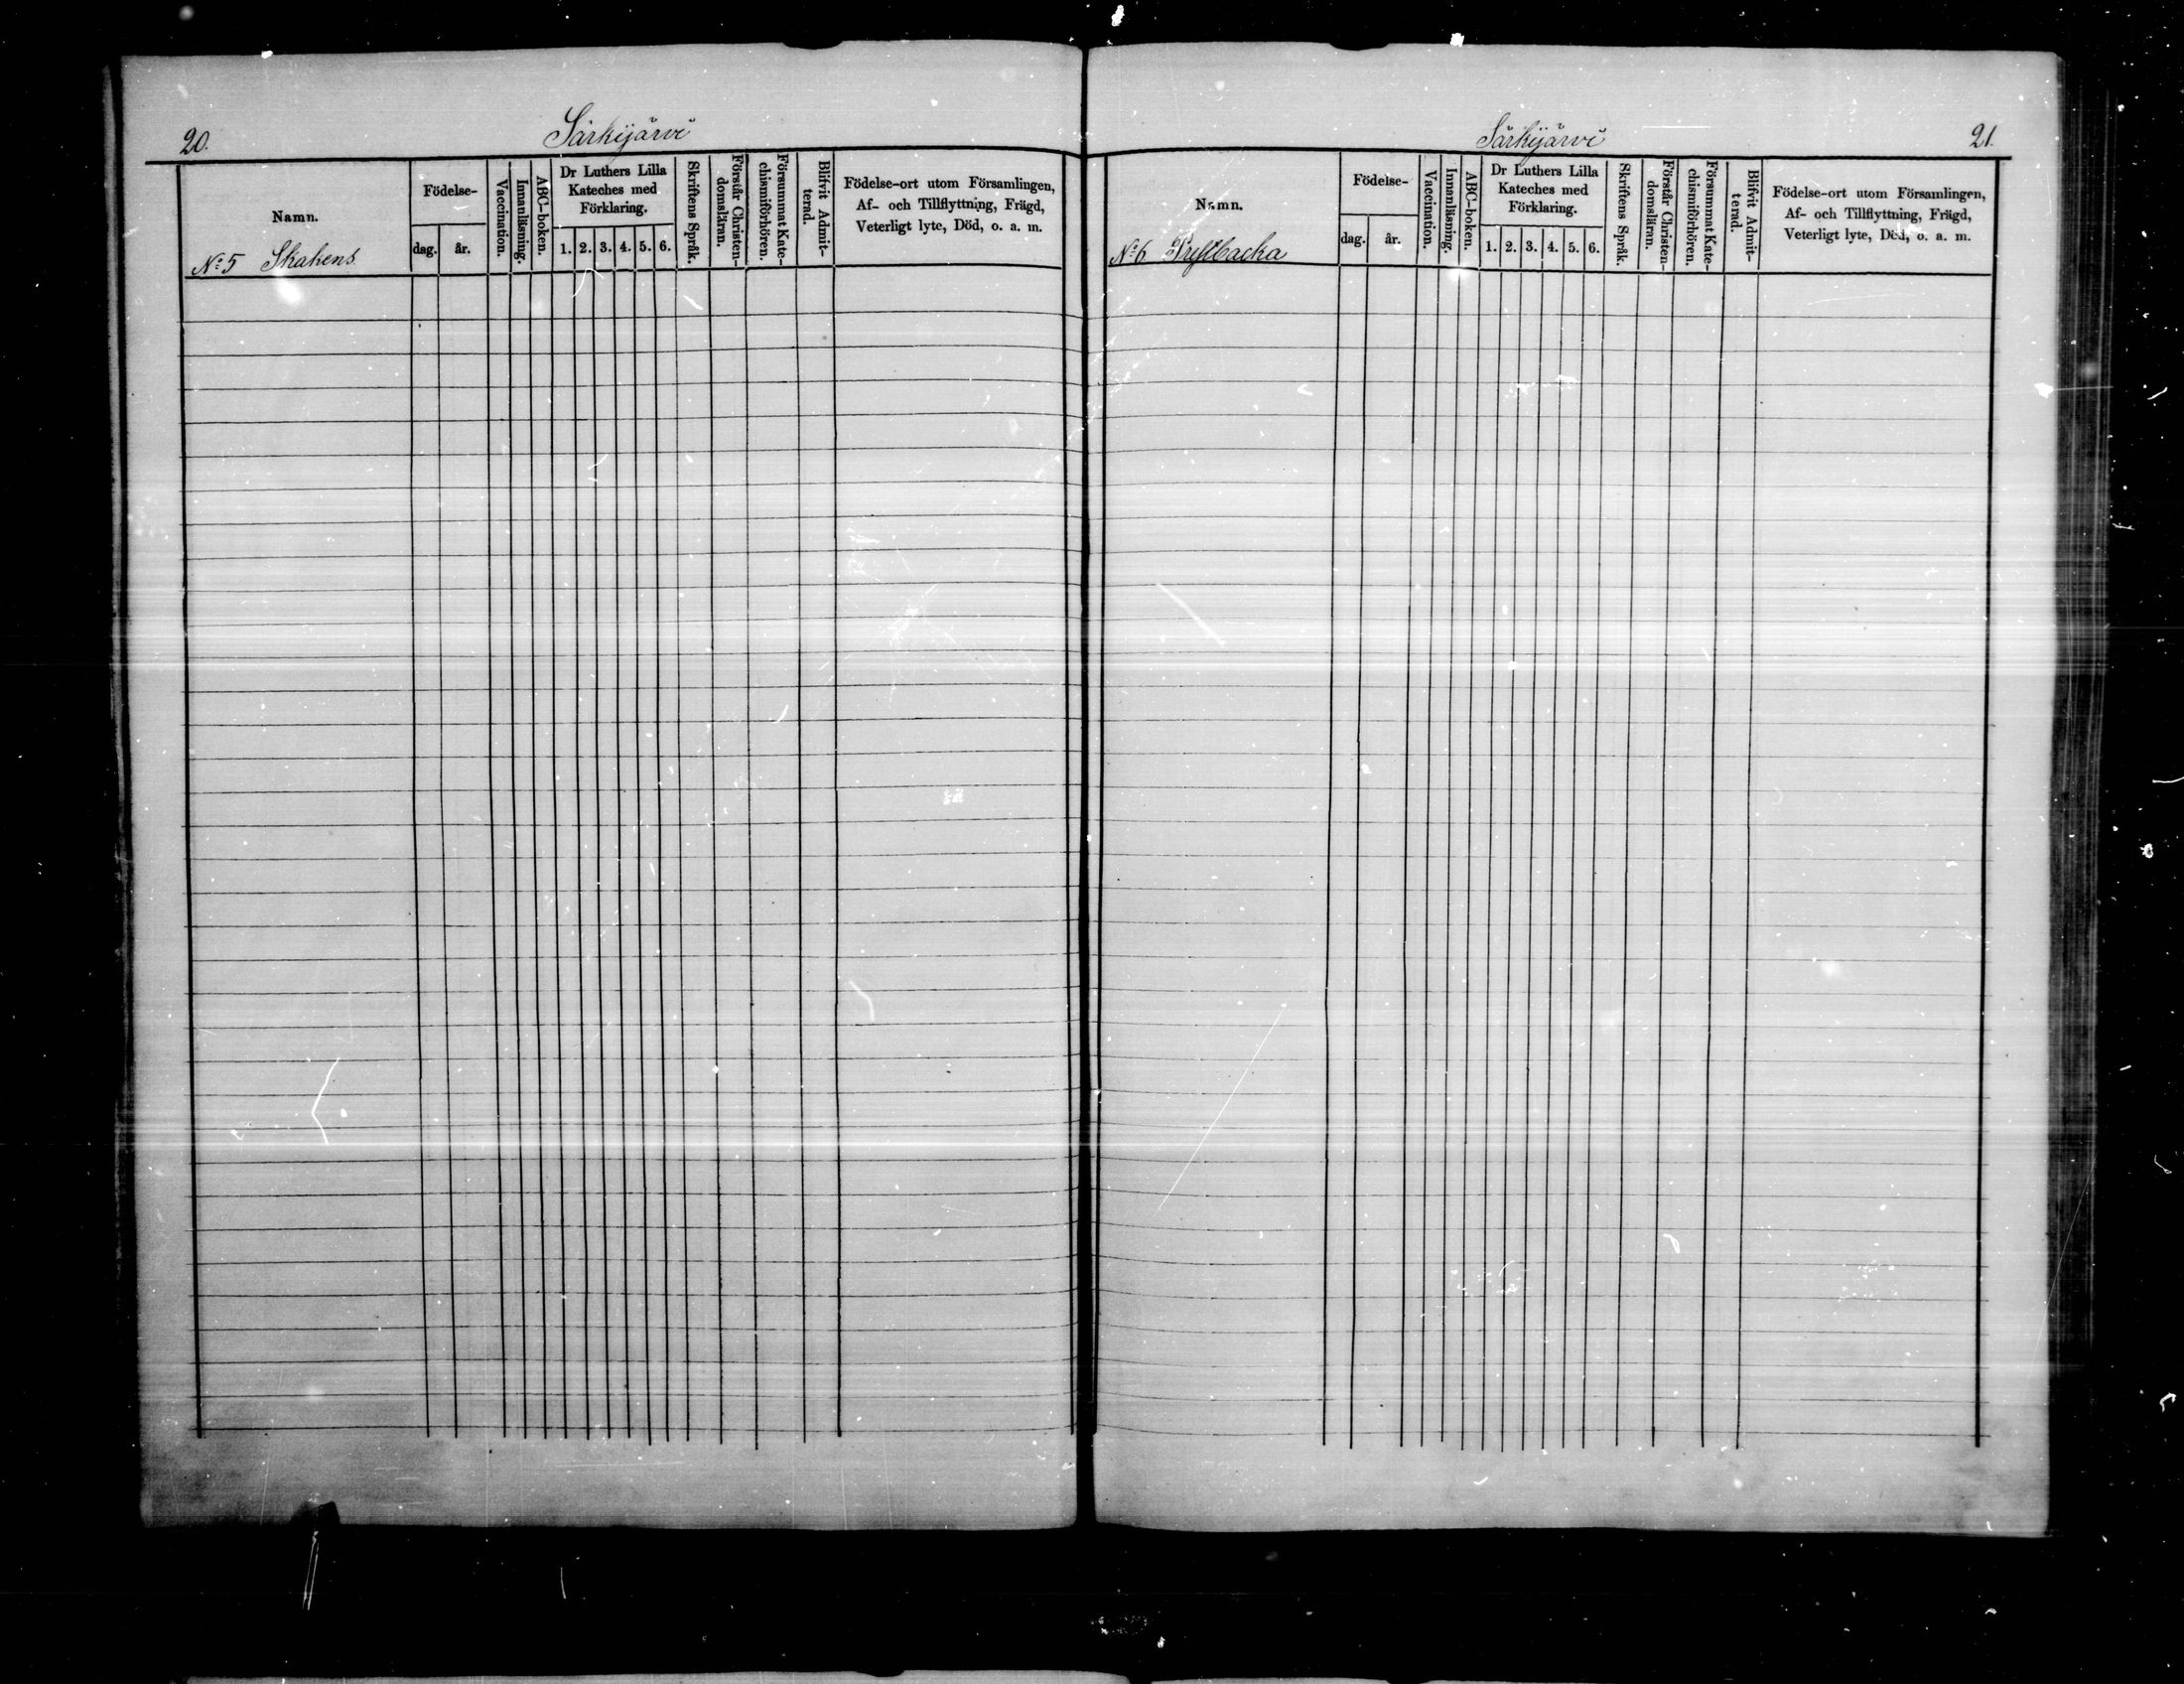 20.
Särkijärvi
Namn.
Födelse-
dag.
år.
Vaccination.
Innanläsning.
ABC-boken.
Dr Luthers Lilla
Kateches med
Förklaring.
1. 2. 3. 4. 5. 6.
Skriftens Språk.
Förstår Christen-
domsläran.
Försummat Kate-
chismiförhören.
Blifvit Admit-
terad.
Födelse-ort utom Församlingen,
Af- och Tillflyttning, Frägd,
Veterligt lyte, Död, o. a. m.
No 5 Skakens
Särkijärvi
21.
Namn.
Födelse-
dag.
år.
Vaccination.
Innanläsning.
ABC-boken.
Dr Luthers Lilla
Kateches med
Förklaring.
1. 2. 3. 4. 5. 6.
Skriftens Språk.
Förstår Christen-
domsläran.
Försummat Kate-
chismiförhören.
Blifvit Admit-
terad.
Födelse-ort utom Församlingen,
Af- och Tillflyttning, Frägd,
Veterligt lyte, Död, o. a. m.
No 6